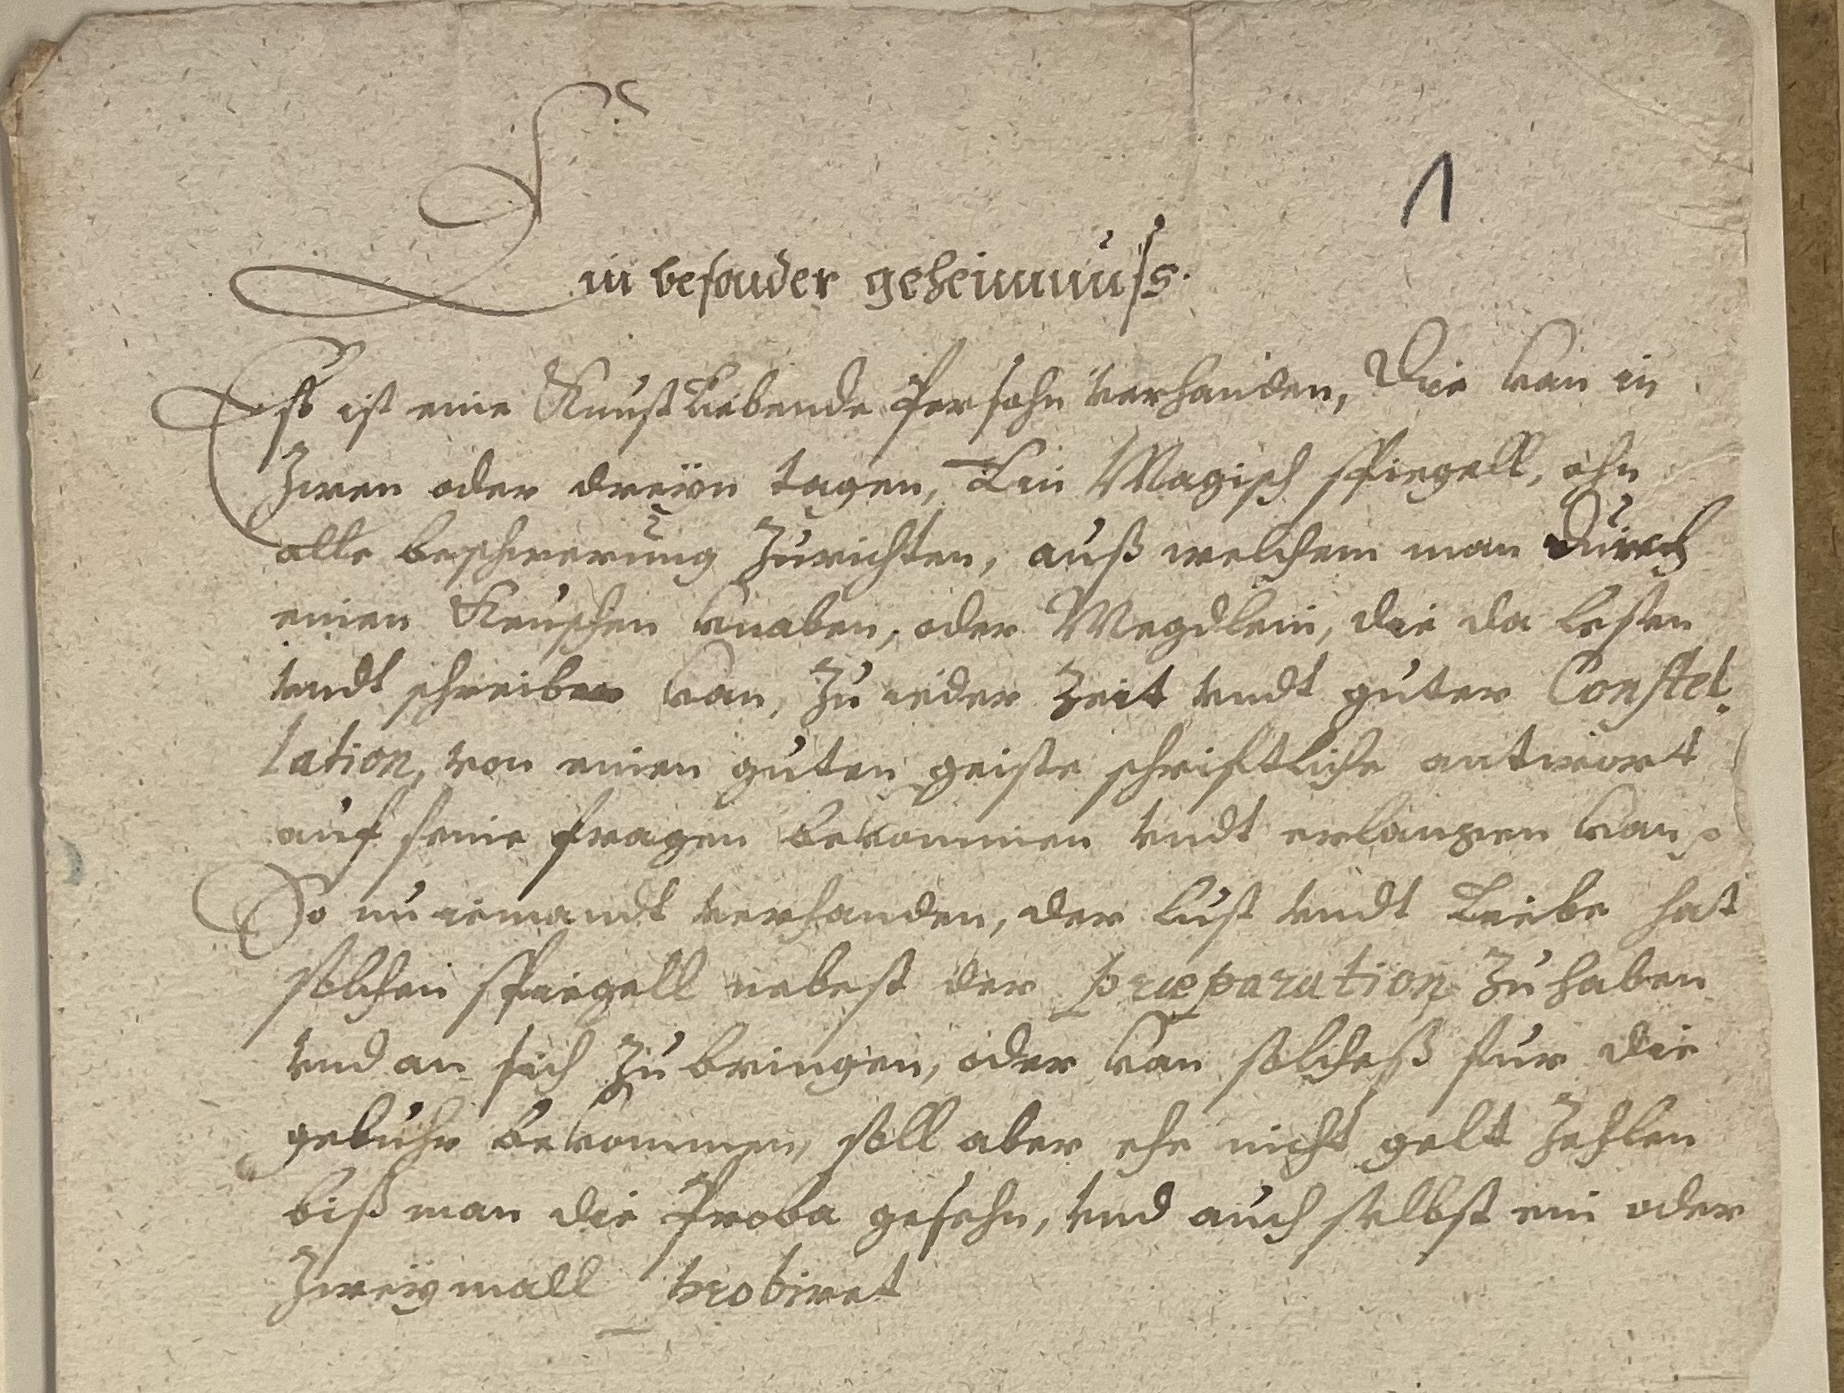 1
Ein besonder geheimnuss.
Es ist eine Kunst Liebende Persohn verhanden, Die kan in
Zween oder dreyen tagen, Ein Magisch spiegell, ohn
alle beschwerung Zurichten, auß welchem man durch
einen Keuschen knaben, oder Megdlein, die da lesen
vndt schreiben kan, Zu ieder Zeit vndt guter Constel-
lation, von einen guten geiste schriftliche antwort
auf seine fragen bekommen vndt erlangen kan.
So nu iemandt verhanden, der lust vndt Liebe hat
solchen spiegell nebest der præparation Zu haben
vnd an sich Zu bringen, oder kan solcheß fur die
gebuhr bekommen, soll aber ehe nicht gelt Zehlen
biß man die Proba gesehn, vnd auch selbst ein oder
Zweymall probiret